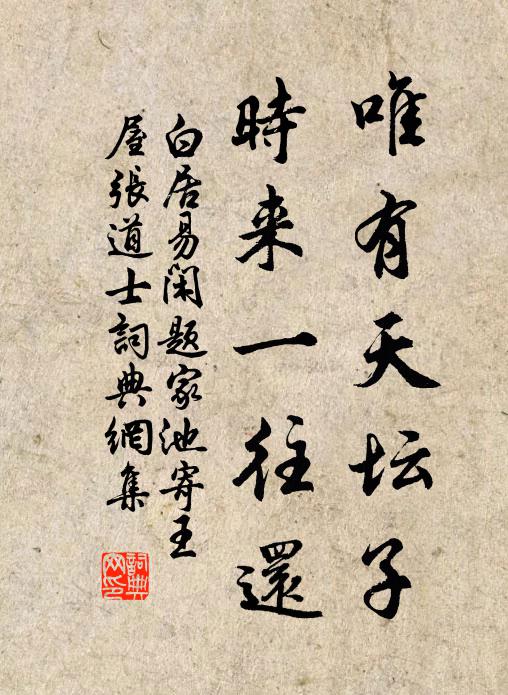 唯有天坛子
時来一往還
白居易閑题家池寄王
屋張道士詞典網集
詞典
网印